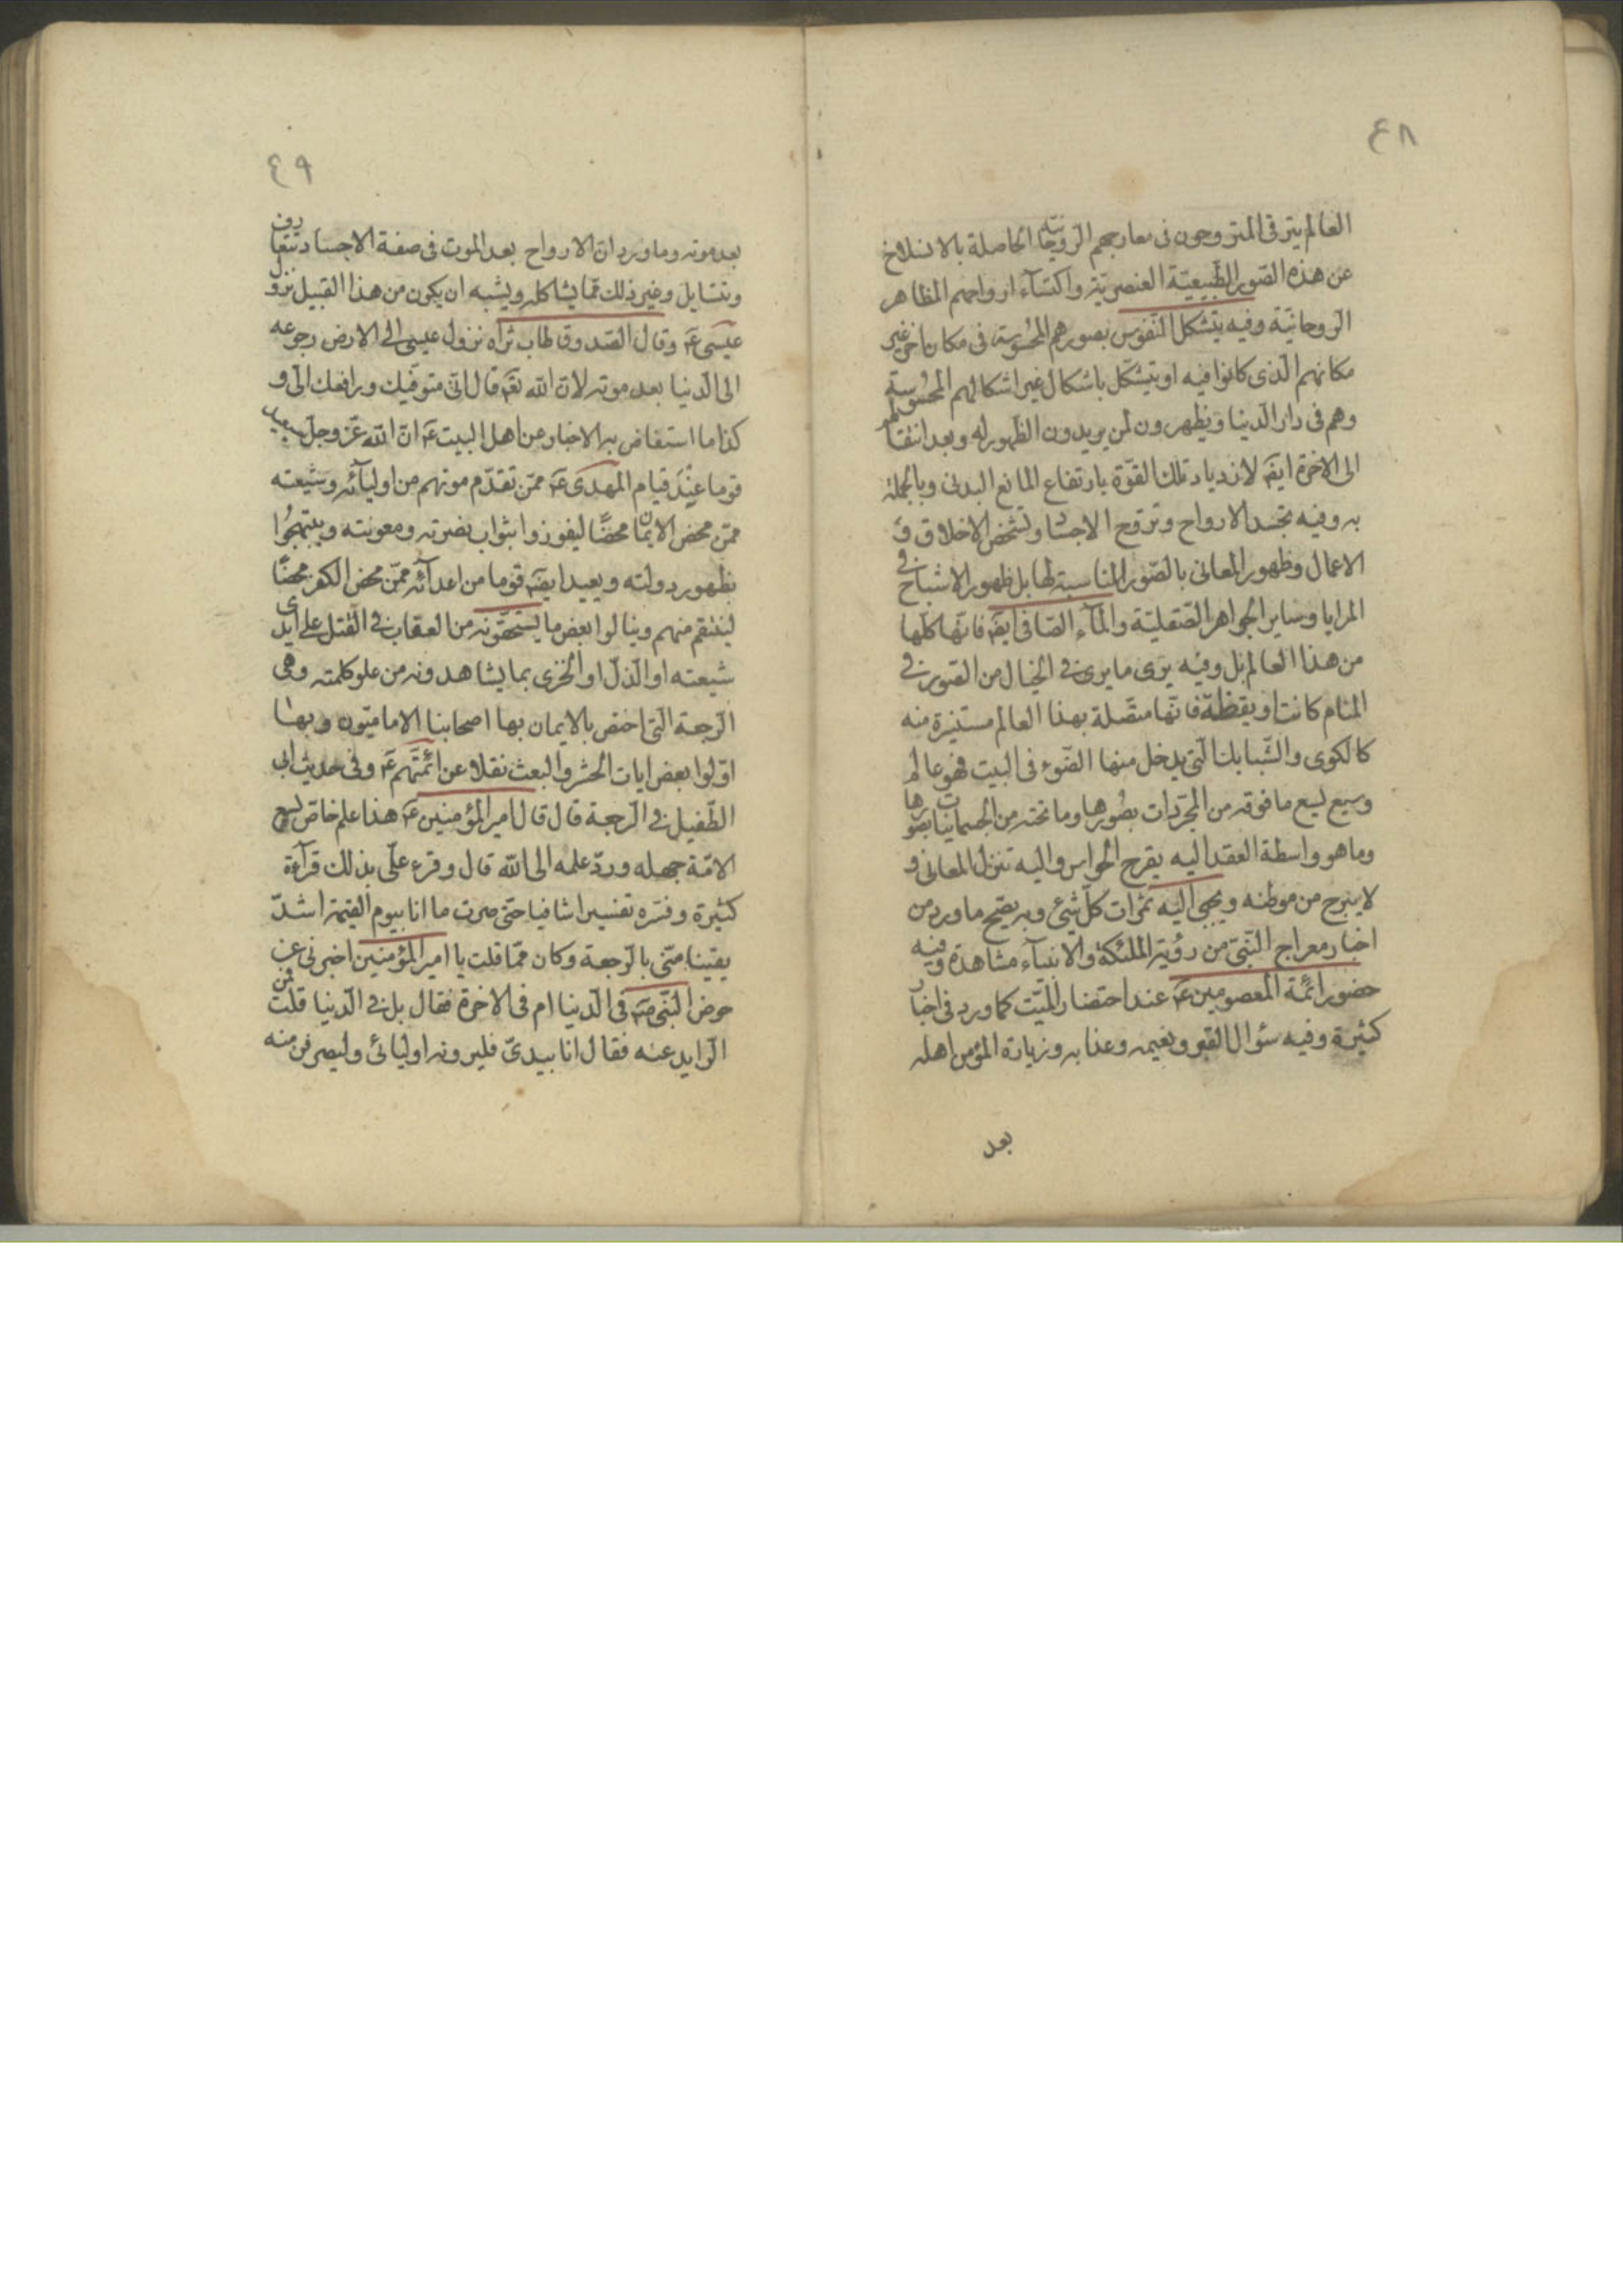 ٤٨
العالم يترقى المتروحون فى معارجهم الروحانية الحاصلة بالانسلاخ
عن هذه الصور الطبيعية العنصرية واكتساء ارواحهم المظاهر
الروحانية وفيه يتشكل النفوس بصورهم المحسوسة فى مكان اخر غير
مكانهم الذى كانوا فيه او يتشكل باشكال غير اشكالهم المحسوسة
وهم فى دار الدنيا ويظهرون لمن يريدون الظهور له وبعد انتقالهم
الى الاخرة ايضَ لازدياد تلك القوة بارتفاع المانع البدنى وبالجملة
به وفيه تجسد الارواح وتروح الاجساد وتشخص الاخلاق و
الاعمال وظهور المعانى بالصور المناسبة لها بل ظهور الاشباح فى
المرايا وساير الجواهر الصقلية والمآء الصافى ايضَ فانها كلها
من هذا العالم بل وفيه يرى ما يرى فى الخيال من الصور فى
المنام كانت او يقظة فانها متصلة بهذا العالم مستنيرة منه
كالكوى والشبابك التى يدخل منها الضوء فى البيت فهو عالم
وسيع يسع ما فوقه من المجردات بصورها وما تحته من الجسمانيات بصورها
وما هو واسطة العقد اليه يعرج الحواس واليه تنزل المعانى و
لا يبرح من موطنه ويجبى اليه ثمرات كل شئ وبه يصح ما ورد من
اخبار معراج النبى من رؤية الملئكة والانبيآء مشاهدة وفيه
حضور ائمة المعصومين عَ عند احتضار الميت كما ورد فى اخبار
كثيرة وفيه سؤال القبر ونعيمه وعذابه وزيارة المؤمن اهله
بعد
٤٩
بعد موته وما ورد ان الارواح بعد الموت فى صفة الاجساد تتعارف
وتتسايل وغير ذلك مما يشاكله ويشبه ان يكون من هذا القبيل نزول
عيسى عَ وقال الصدوق طاب ثراه نزول عيسى الى الارض رجوعه
الى الدنيا بعد موته لان الله تعَ قال انى متوفيك ورافعك الى و
كذا ما استفاض به الاخبار عن اهل البيت عَ ان الله عز وجل سيعيد
قوما عند قيام المهدى عَ ممن تقدم موتهم من اوليآئه وشيعته
ممن محض الايمان محضا ليفوزوا بثواب نصرته ومعونته ويبتهجوا
بظهور دولته ويعيد ايضَ قوما من اعدآئه ممن محض الكفر محضا
لينتقم منهم وينالوا بعض ما يستحقونه من العقاب فى القتل على ايدى
شيعته او الذل او الخزى بما يشاهدونه من علو كلمته وهى
الرجعة التى اختص بالايمان بها اصحابنا الاماميون وبها
اولوا بعض ايات الحشر والبعث نقلا عن ائمتهم عَ وفى حديث ابى
الطفيل فى الرجعة قال قال امير المؤمنين عَ هذا علم خاص يسع
الامة جهله ورد علمه الى الله قال وقرء على بذلك قرآءة
كثيرة وفسره تفسيرا شافيا حتى صرت ما انا بيوم القيمة اشد
يقينا منى بالرجعة وكان مما قلت يا امير المؤمنين اخبرنى عن
حوض النبى صَ فى الدنيا ام فى الاخرة فقال بل فى الدنيا قلت فمن
الزايد عنه فقال انا بيدى فليرونه اوليائى وليصرفن منه